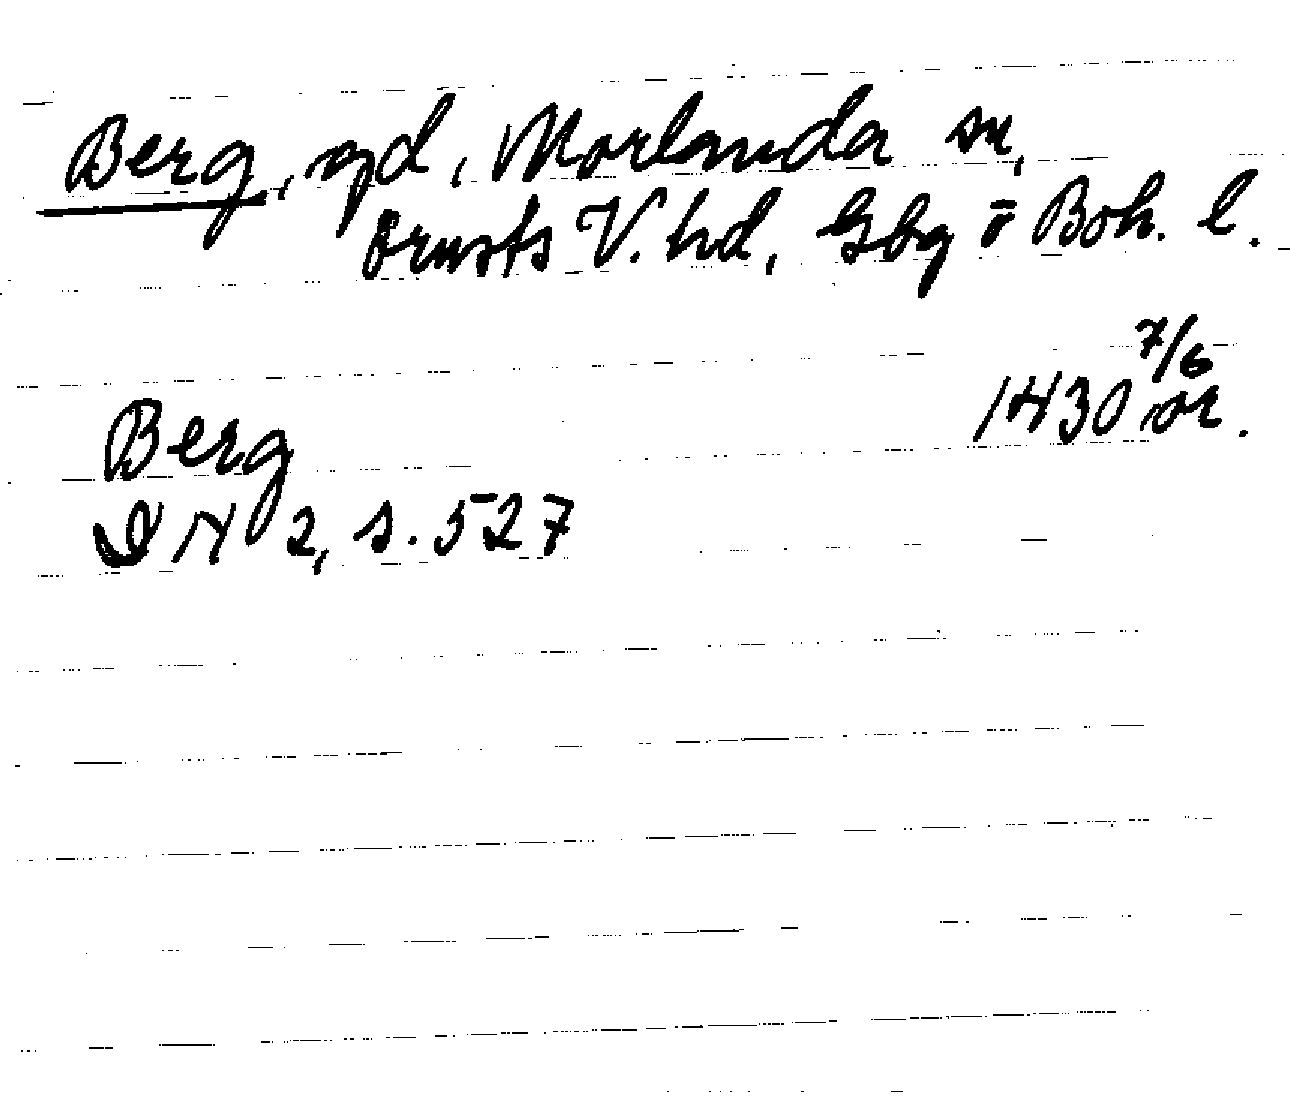 Berg, gd, Morlanda sn,
Orusts V. hd, Gbg o Boh. l.
1430 7/6 or.
Berg
DN 2, s. 527